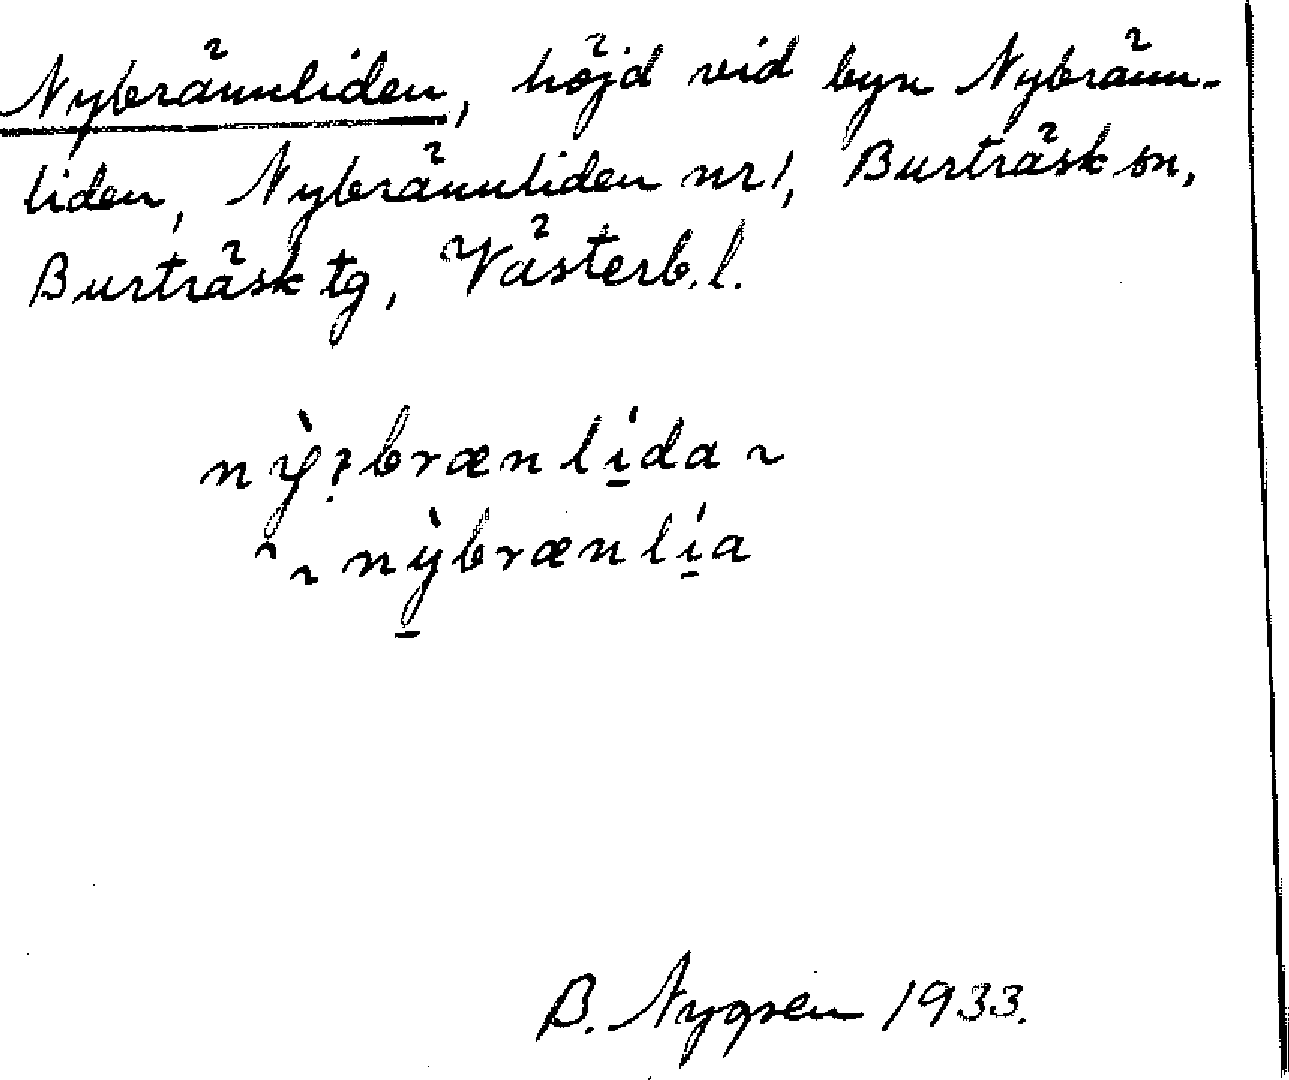 Nybrännliden, höjd vid byn Nybränn-
liden, Nybrännliden nr 1, Burträsk sn,
Burträsk tg, Västerb. l.
nỳ?brænlída ~
~ nỳbrænlía
B. Nygren 1933.